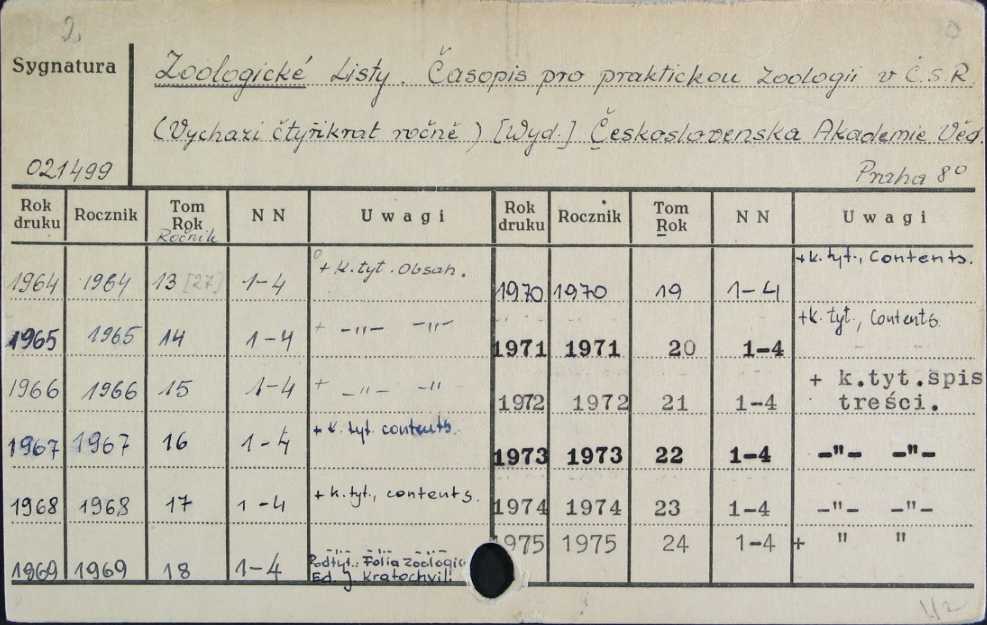 2.
Sygnatura
Zoologické Listy. Časopis pro praktickou zoologii v Č.S.R.
(Vychazí čtyřikrat ročně) [Wyd.] Československa Akademie Věd.
021499
Praha 8°
Rok druku Rocznik Tom Rok Ročnik NN Uwagi Rok druku Rocznik Tom Rok NN Uwagi
1964 1964 13 [27] 1-4 + k.tyt. Obsah. 1970 1970 19 1-4 +k. tyt., Contents.
1965 1965 14 1-4 + -"- -"- 1971 1971 20 1-4 +k. tyt., Contents.
1966 1966 15 1-4 + -"- -" 1972 1972 21 1-4 + k.tyt.spis treści.
1967 1967 16 1-4 + k. tyt. contents. 1973 1973 22 1-4 -"- -"-
1968 1968 17 1-4 + k. tyt., contents. 1974 1974 23 1-4 -"- -"-
1969 1969 18 1-4 Podtyt.: Folia zoologica Ed. J. Kratochvil. 1975 1975 24 1-4 + " "
1/2